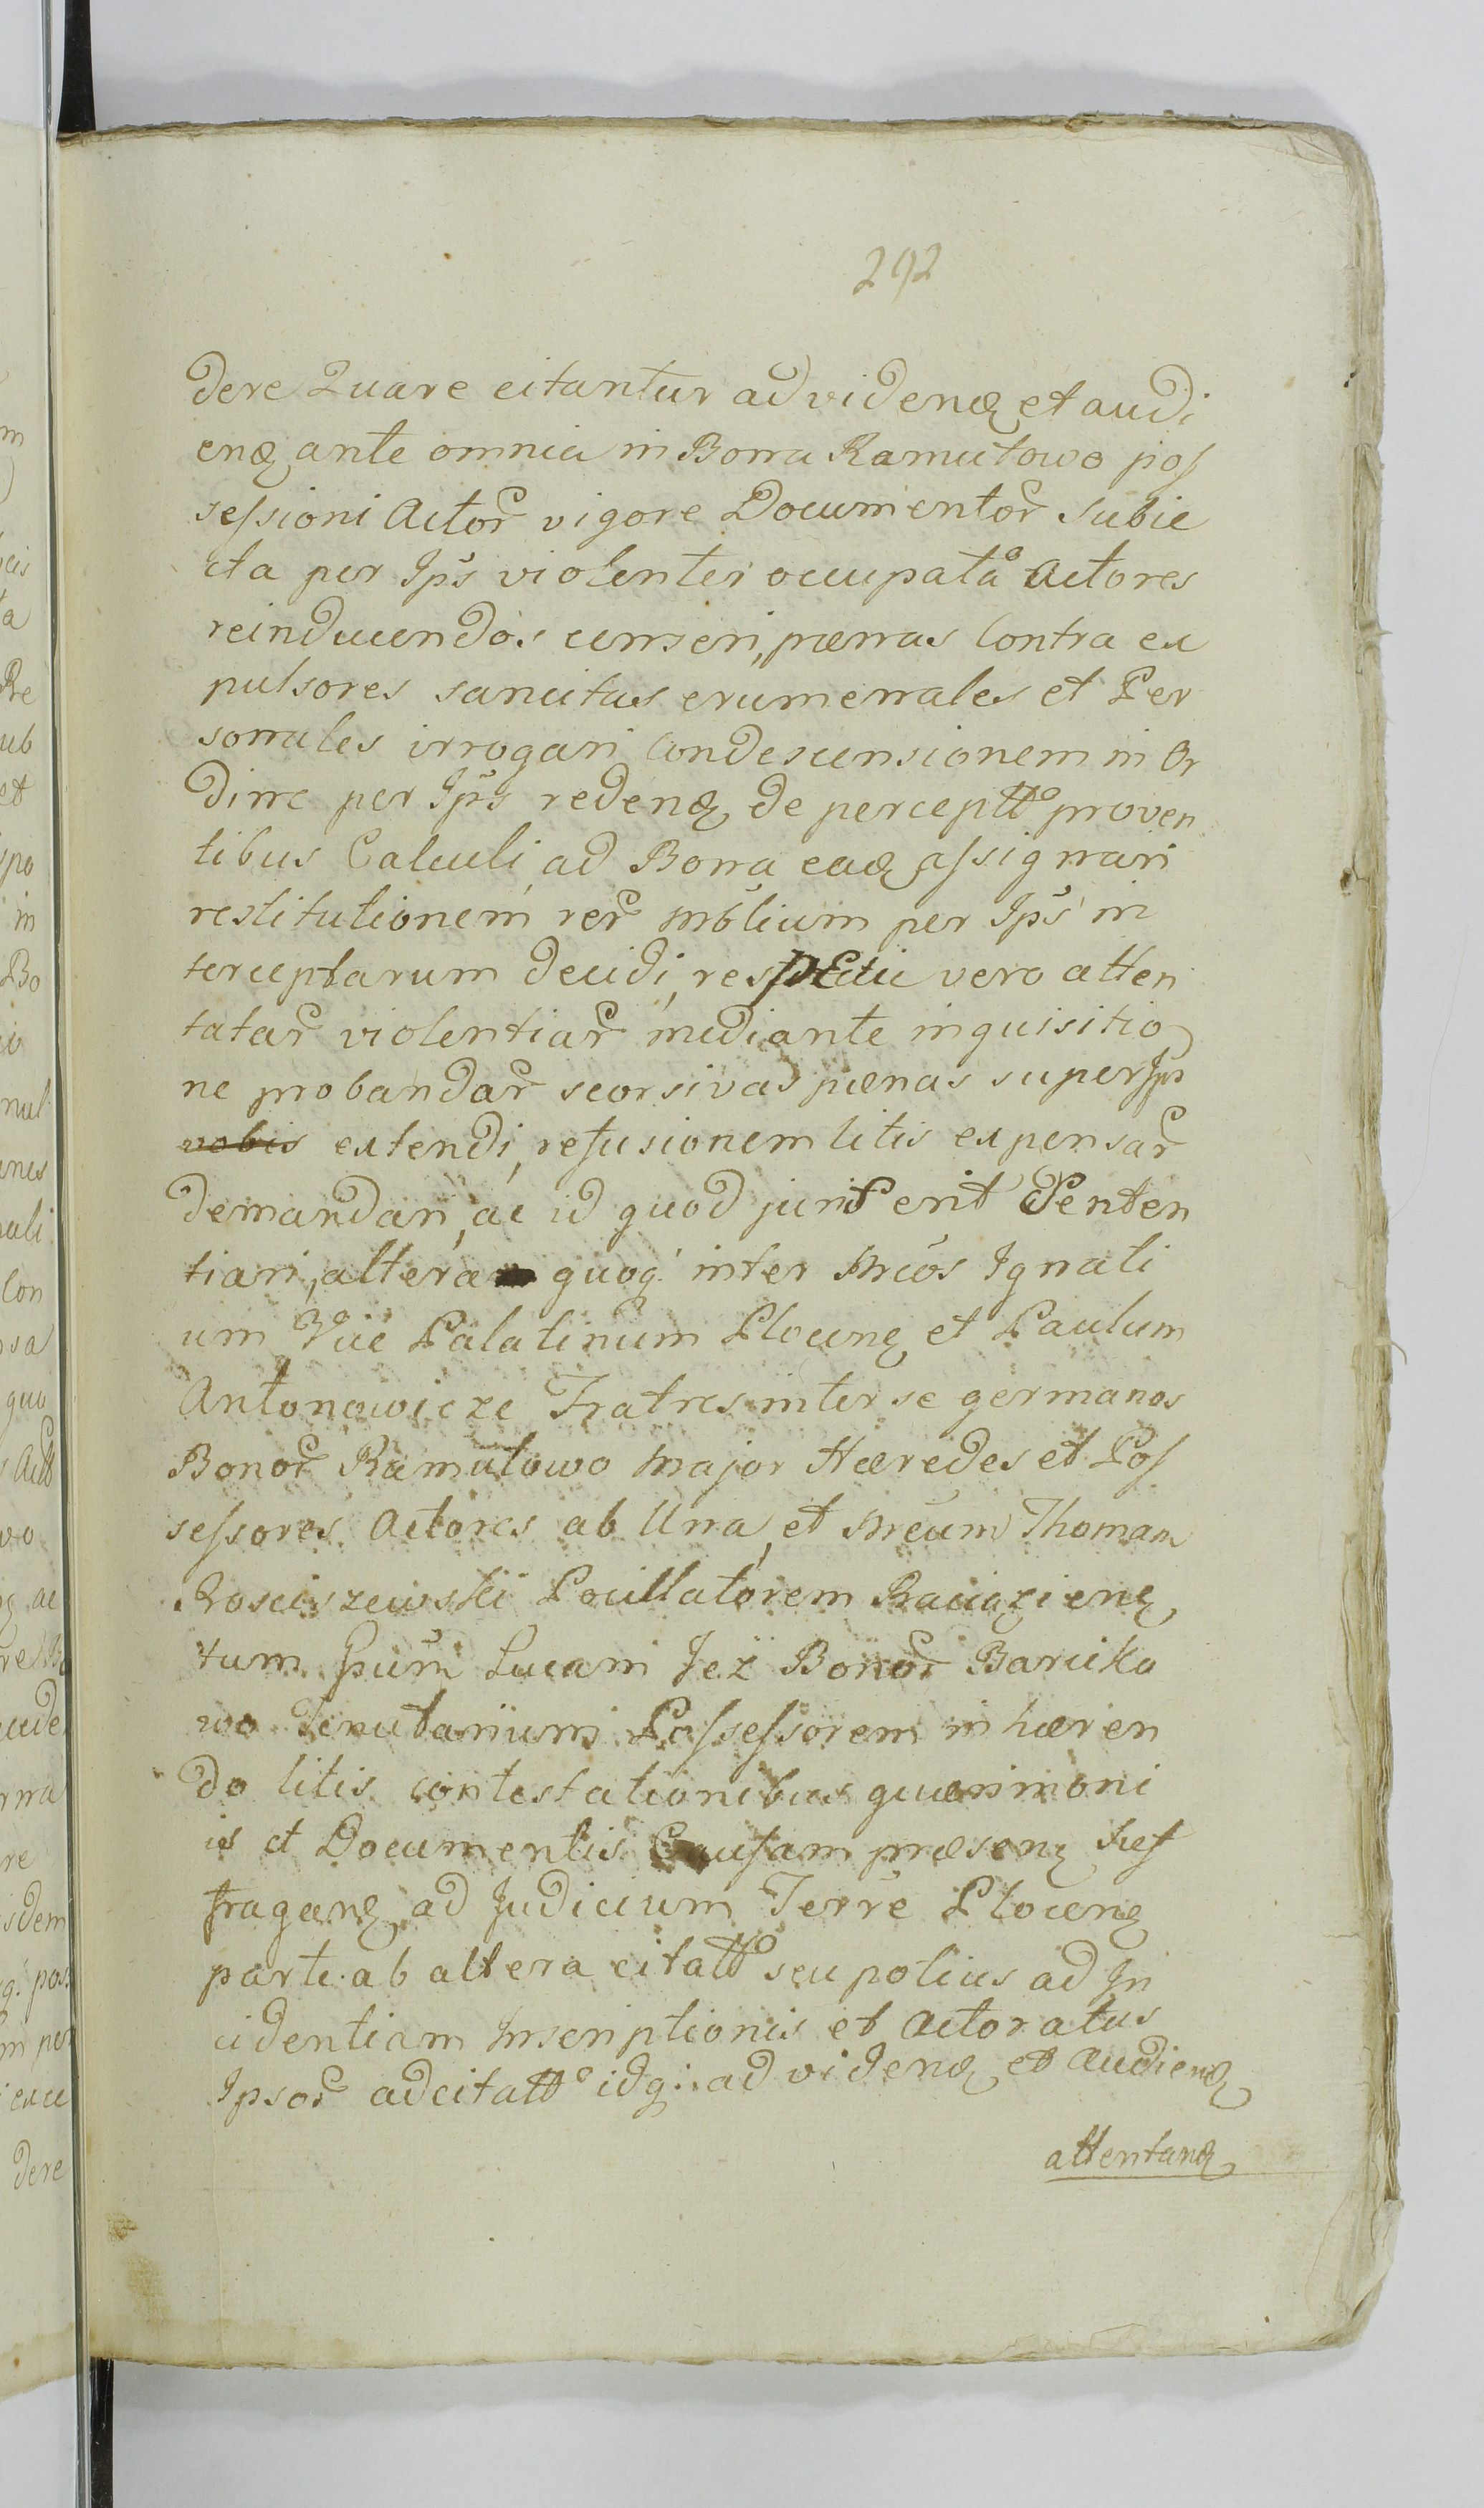 292
dere Quare citantur ad videnđ et audi
enđ ante omnia in Bona Ramutowo pos
sessioni Actor̃ vigore Documentor̃ subie
cta per Ips̃ violenter occupata Actores
reinducendos censeri, pænas Contra ex
pulsores sancitas crumenales et Per
sonales irrogari Condescensionem in Or
dine per Ips̃ redenđ de perceptt͠o proven
tibus Calculi, ad Bona eađ assignari
restitutionem rer̃ mb̃lium per Ips̃ in
terceptarum decidi, respectu vero atten
tatar̃ violentiar̃ mediante inquisitio
ne probandar̃ seorsivas pœnas super Ips̃
vobis extendi, refusionem litis expensar̃
demandari, ac id quod juris erit Senten
tiari, altera quoq. inter Mc̃os Ignati
um Vice Palatinum Plocenȩ et Paulum
Antonowicze Fratres inter se germanos
Bonor̃ Ramutowo Major Hæredes et Pos
sessores Actores ab Una, et Mc̃um Thomam
Rosciszewski Pocillatorem Raciązienȩ,
tum Gsum̃ Lucam Jeż Bonor̃ Barciko
wo Tenutarium Possessorem in hæren
do litis contestationibus quærimoni
is et Documentis Causam præsenȩ suf
fraganȩ ad Judicium Terr̃e Plocenȩ
parte ab altera citatt͠o seu potius ad In
cidentiam Inscriptionis et Actoratus
Ipsor̃ adcitatt͠o idq: ad videnđ et Audienđ
attentanđ